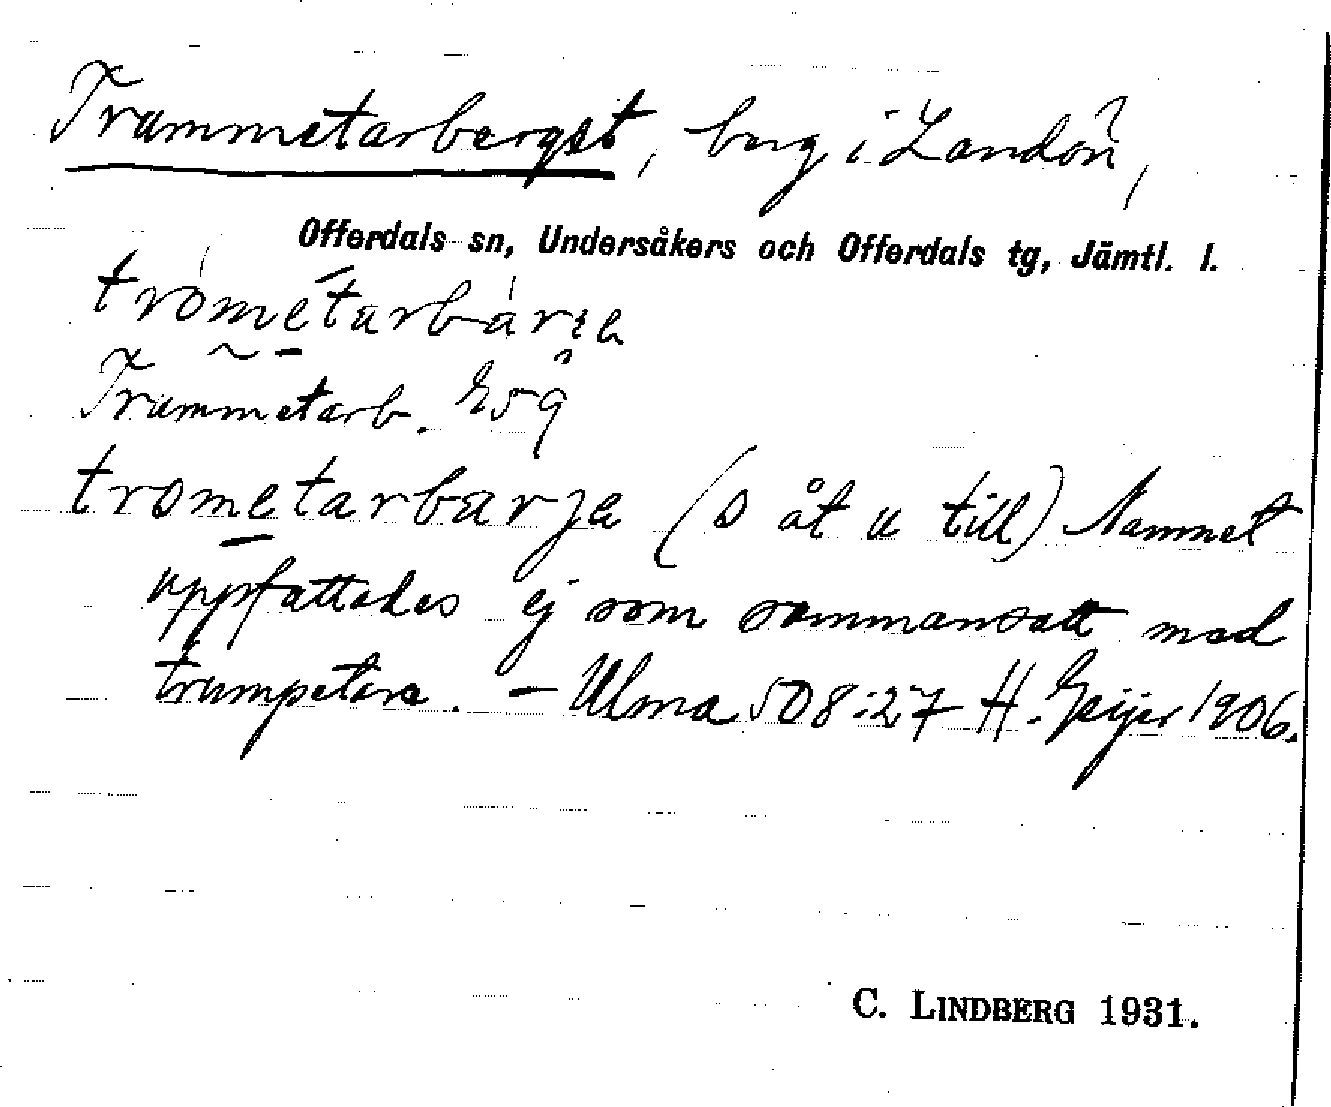 Trummetarberget, berg i Landön,
Offerdals sn, Undersåkers och Offerdals tg, Jämtl. l.
trometarbärja
Trummetarb.
trometarbarja (o åt u till) Namnet
uppfattades ej som sammansatt med
trumpetare. – Ulma 508:27 H. Geijer 1906.
C. LINDBERG 1931.